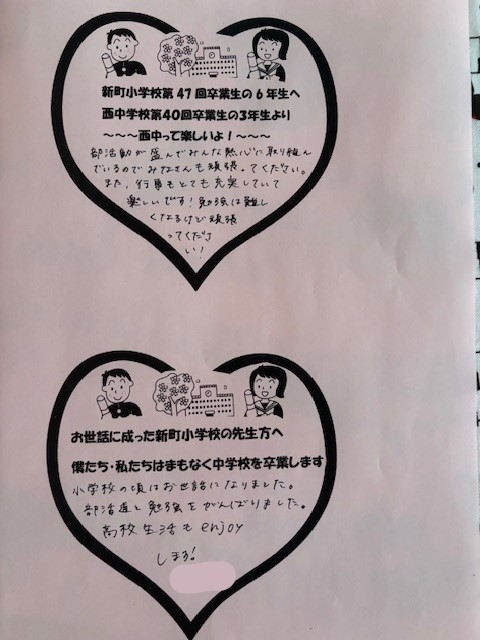 新町小学校第47回卒業生の6年生へ
西中学校第40回卒業生の3年生より
～～～西中って楽しいよ！～～～
部活動が盛んでみんな熱心に取り組ん
でいるのでみなさんも頑張ってください。
また、行事もとても充実していて
楽しいです！勉強は難し
くなるけど頑張
ってくださ
い！
お世話に成った新町小学校の先生方へ
僕たち・私たちはまもなく中学校を卒業します
小学校の頃はお世話になりました。
部活道と勉強をがんばりました。
高校生活もenjoy
します！